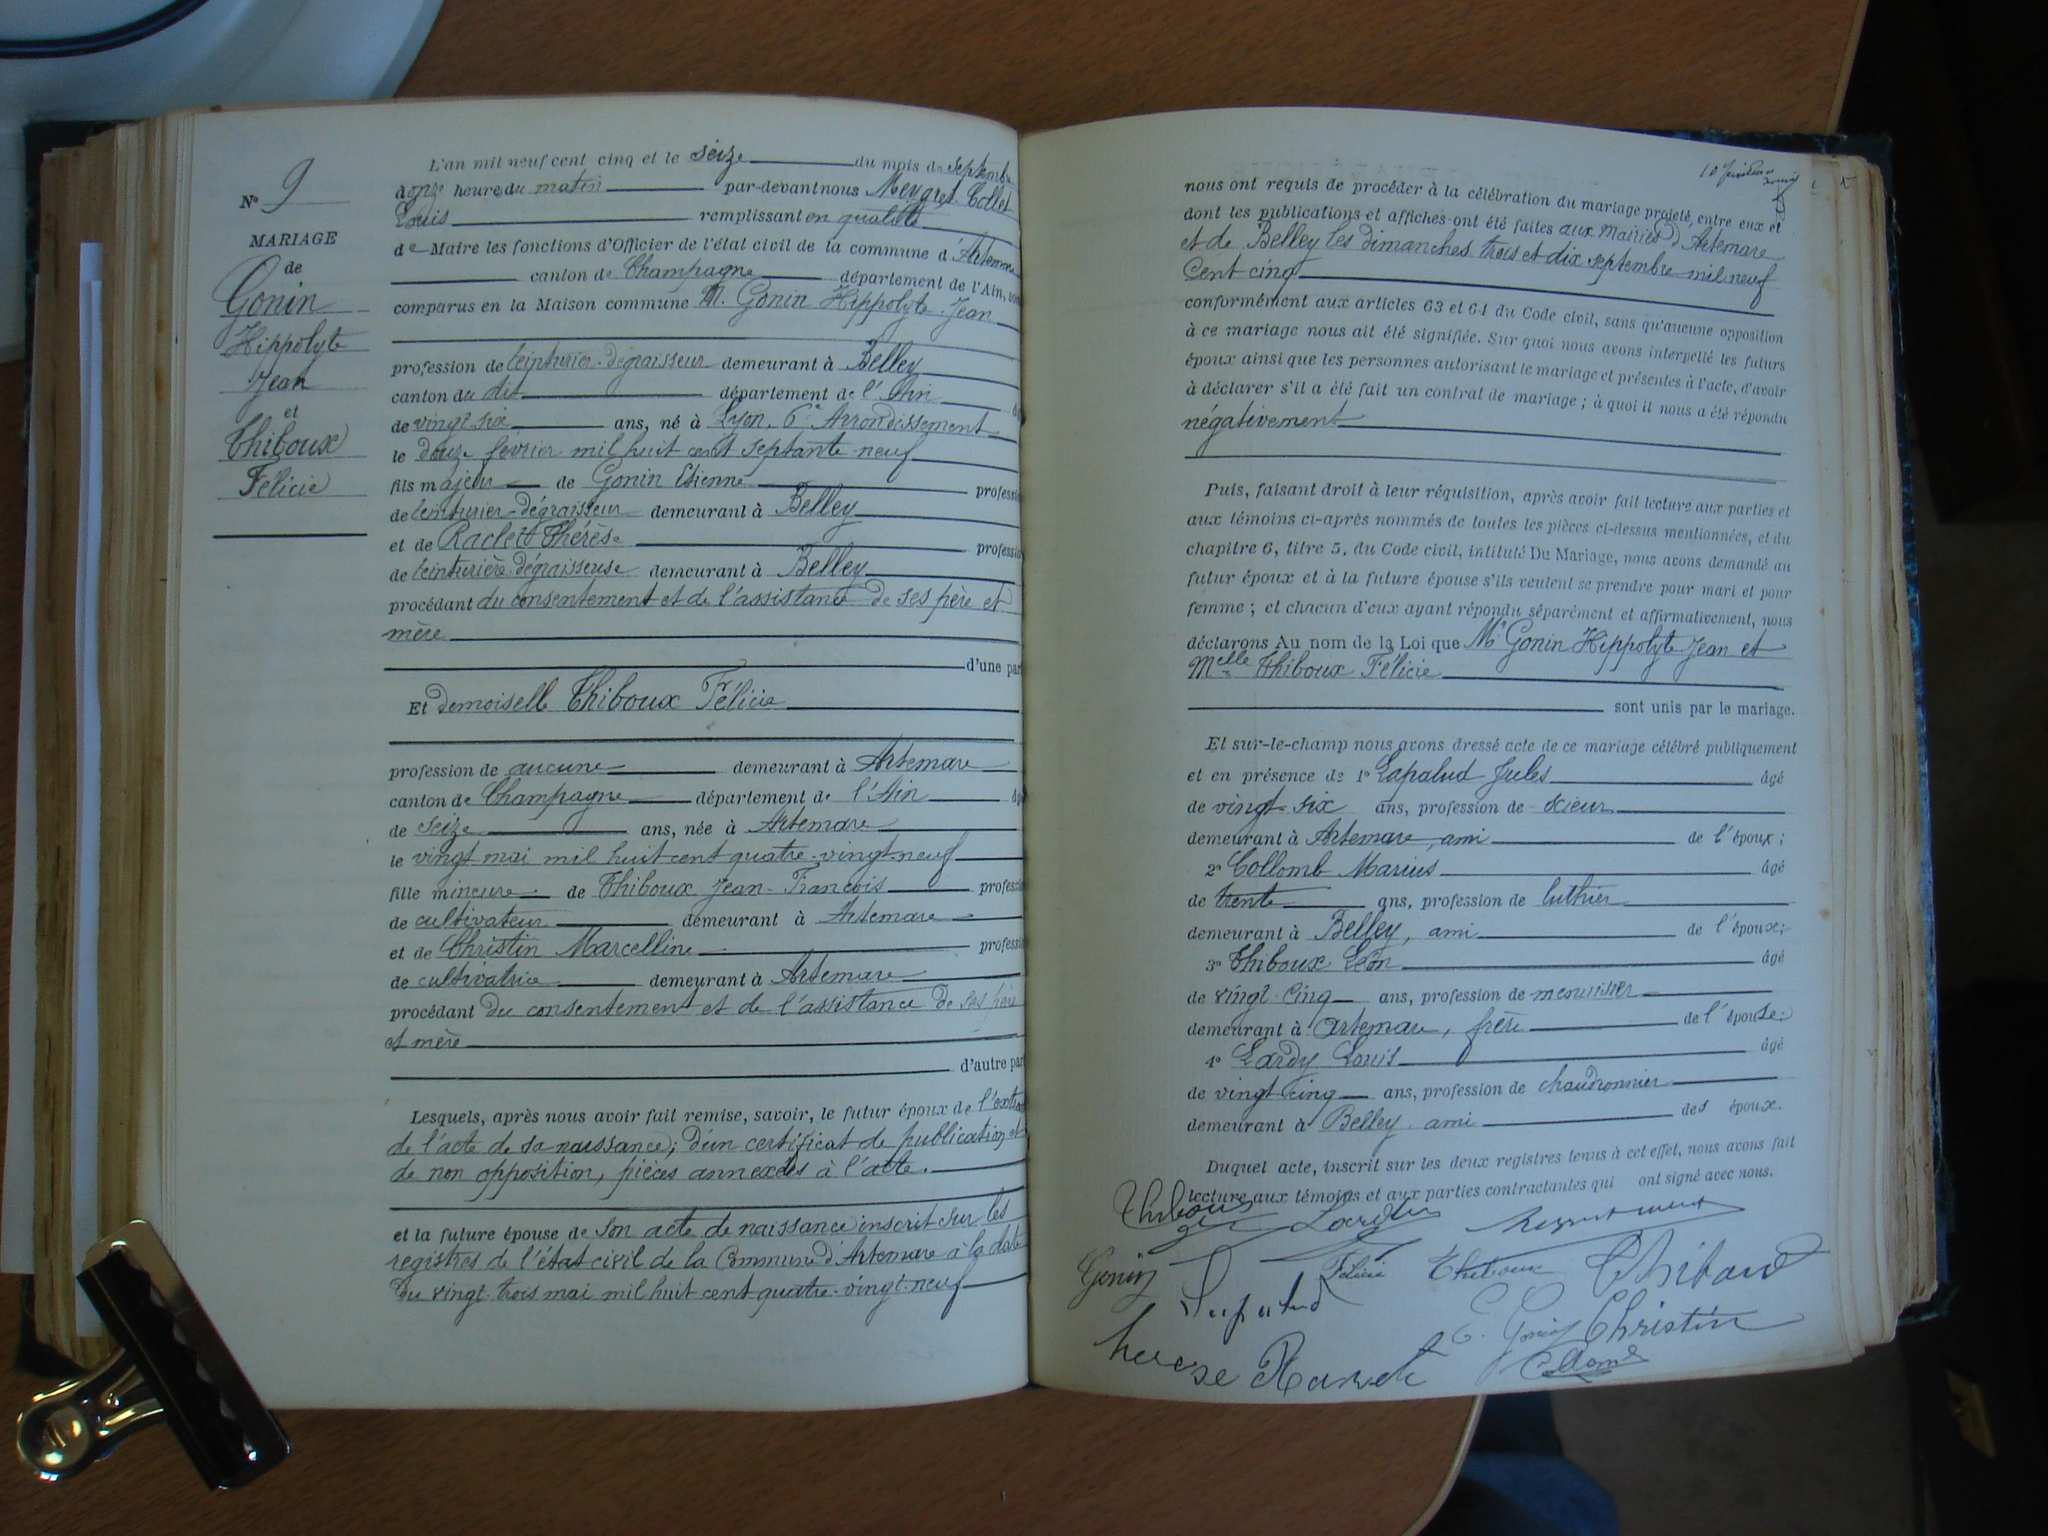 N° 9
MARIAGE
de
Gonin
Hippolyte
Jean
et
Thiboux
Félicie
L'an mil neuf cent cinq et le seize du mois de septembre
à onze heure du matin par-devant nous Meygret Collet
Louis remplissant en qualité
de Maire les fonctions d'Officier de l'état civil de la commune d'Artemare
canton de Champagne département de l'Ain, sont
comparus en la Maison commune M. Gonin Hippolyte Jean
profession de teinturier-dégraisseur demeurant à Belley
canton du dit département de l'Ain
de vingt six ans, né à Lyon, 6e Arrondissement
le douze février mil huit cent septante neuf
fils majeur de Gonin Etienne profession
de teinturier-dégraisseur demeurant à Belley
et de Raclet Thérèse profession
de teinturière-dégraisseuse demeurant à Belley
procédant du consentement et de l'assistance de ses père et
mère
d'une part
Et demoiselle Thiboux Félicie
profession de aucune demeurant à Artemare
canton de Champagne département de l'Ain
de seize ans, née à Artemare
le vingt mai mil huit cent quatre-vingt-neuf
fille mineure de Thiboux Jean-François profession
de cultivateur demeurant à Artemare
et de Christin Marcelline profession
de cultivatrice demeurant à Artemare
procédant du consentement et de l'assistance de ses père
et mère
d'autre part
Lesquels, après nous avoir fait remise, savoir, le futur époux de l'extrait
de l'acte de sa naissance; d'un certificat de publication et
de non opposition, pièces annexées à l'acte.
et la future épouse de son acte de naissance inscrit sur les
registres de l'état civil de la Commune d'Artemare à la date
du vingt-trois mai mil huit cent quatre-vingt-neuf
nous ont requis de procéder à la célébration du mariage projeté entre eux et
dont les publications et affiches ont été faites aux mairies d'Artemare
et de Belley les dimanches trois et dix septembre mil neuf
cent cinq
conformément aux articles 63 et 64 du Code civil, sans qu'aucune opposition
à ce mariage nous ait été signifiée. Sur quoi nous avons interpellé les futurs
époux ainsi que les personnes autorisant le mariage et présentes à l'acte, d'avoir
à déclarer s'il a été fait un contrat de mariage; à quoi il nous a été répondu
négativement
Puis, faisant droit à leur réquisition, après avoir fait lecture aux parties et
aux témoins ci-après nommés de toutes les pièces ci-dessus mentionnées, et du
chapitre 6, titre 5, du Code civil, intitulé Du Mariage, nous avons demandé au
futur époux et à la future épouse s'ils veulent se prendre pour mari et pour
femme; et chacun d'eux ayant répondu séparément et affirmativement, nous
déclarons Au nom de la Loi que Mr Gonin Hippolyte Jean et
Melle Thiboux Félicie
sont unis par le mariage.
Et sur-le-champ nous avons dressé acte de ce mariage célébré publiquement
et en présence de 1° Lapalud Jules âgé
de vingt-six ans, profession de scieur
demeurant à Artemare, ami de l'époux;
2° Collomb Marius âgé
de trente ans, profession de luthier
demeurant à Belley, ami de l'époux;
3° Thiboux Léon âgé
de vingt-cinq ans, profession de menuisier
demeurant à Artemare, frère de l'épouse;
4° Lardy Louis âgé
de vingt-cinq ans, profession de chaudronnier
demeurant à Belley ami des époux.
Duquel acte, inscrit sur les deux registres tenus à cet effet, nous avons fait
lecture aux témoins et aux parties contractantes qui ont signé avec nous.
Thiboux Lardy
Gonin Lapalud Félicie Thiboux
E. Gonin Christin
Collomb